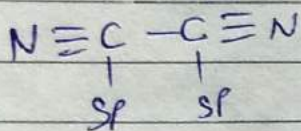 N≡C–C≡N
SP SP